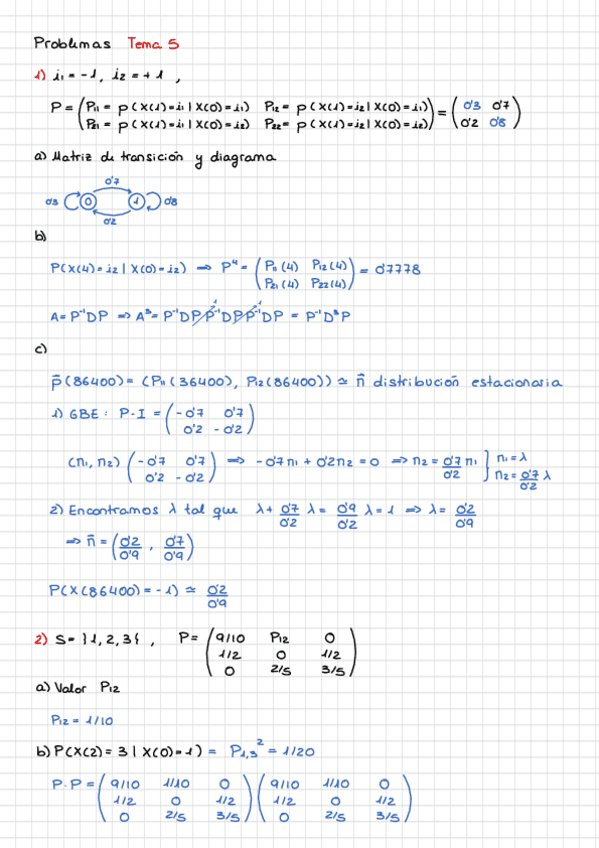 Problemas Tema 5
1) i₁ = -1, i₂ = +1 ,
P = ( P₁₁ = p(X(1)=i₁ | X(0)=i₁) P₁₂ = p(X(1)=i₂ | X(0)=i₁) ) = ( 0'3 0'7 )
( P₂₁ = p(X(1)=i₁ | X(0)=i₂) P₂₂ = p(X(1)=i₂ | X(0)=i₂) ) ( 0'2 0'8 )
a) Matriz de transición y diagrama
0'7
0'3 0 1 0'8
0'2
b)
P(X(4)=i₂ | X(0)=i₂) ⇒ P⁴ = ( P₁₁(4) P₁₂(4) ) = 0'7778
( P₂₁(4) P₂₂(4) )
A = P⁻¹DP ⇒ A³ = P⁻¹DP P⁻¹DP P⁻¹DP = P⁻¹D³P
c)
p̄(86400) = (P₁₁(86400), P₁₂(86400)) ≃ n̄ distribución estacionaria
1) GBE: P-I = ( -0'7 0'7 )
( 0'2 -0'2 )
(n₁, n₂) ( -0'7 0'7 ) ⇒ -0'7n₁ + 0'2n₂ = 0 ⇒ n₂ = 0'7/0'2 n₁ } n₁ = λ
( 0'2 -0'2 ) n₂ = 0'7/0'2 λ
2) Encontramos λ tal que λ + 0'7/0'2 λ = 0'9/0'2 λ = 1 ⇒ λ = 0'2/0'9
⇒ n̄ = ( 0'2/0'9 , 0'7/0'9 )
P(X(86400) = -1) ≃ 0'2/0'9
2) S = {1, 2, 3} , P = ( 9/10 P₁₂ 0 )
( 1/2 0 1/2 )
( 0 2/5 3/5 )
a) Valor P₁₂
P₁₂ = 1/10
b) P(X(2) = 3 | X(0) = 1) = P₁,₃² = 1/20
P·P = ( 9/10 1/10 0 ) ( 9/10 1/10 0 )
( 1/2 0 1/2 ) ( 1/2 0 1/2 )
( 0 2/5 3/5 ) ( 0 2/5 3/5 )